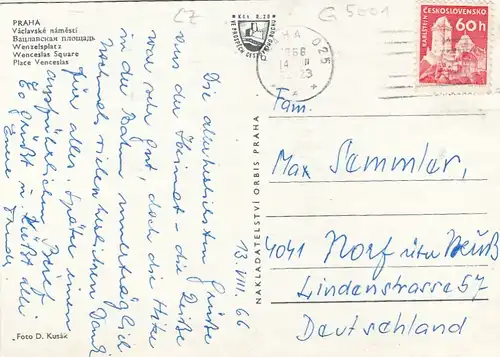 PRAHA
Václavské náměstí
Вацлавская площадь
Wenzelsplatz
Wenceslas Square
Place Venceslas
CZ
G 5001
025
ČESKOSLOVENSKO
KARLŠTEJN
60h
13. VIII. 66
Die allerherzlichsten Grüße
aus der Heimat - die Reise
war sehr gut, doch die Hitze
in der Bahn unerträglich
Nochmals vielen herzlichen Dank
für alles. Später einen
ausführlichen Brief
Es grüßt u. küßt alle
Eure
"Foto D. Kusák
NAKLADATELSTVÍ ORBIS PRAHA
Fam.
Max Semmler,
4041 Norf über Neuß
Lindenstrasse 57
Deutschland